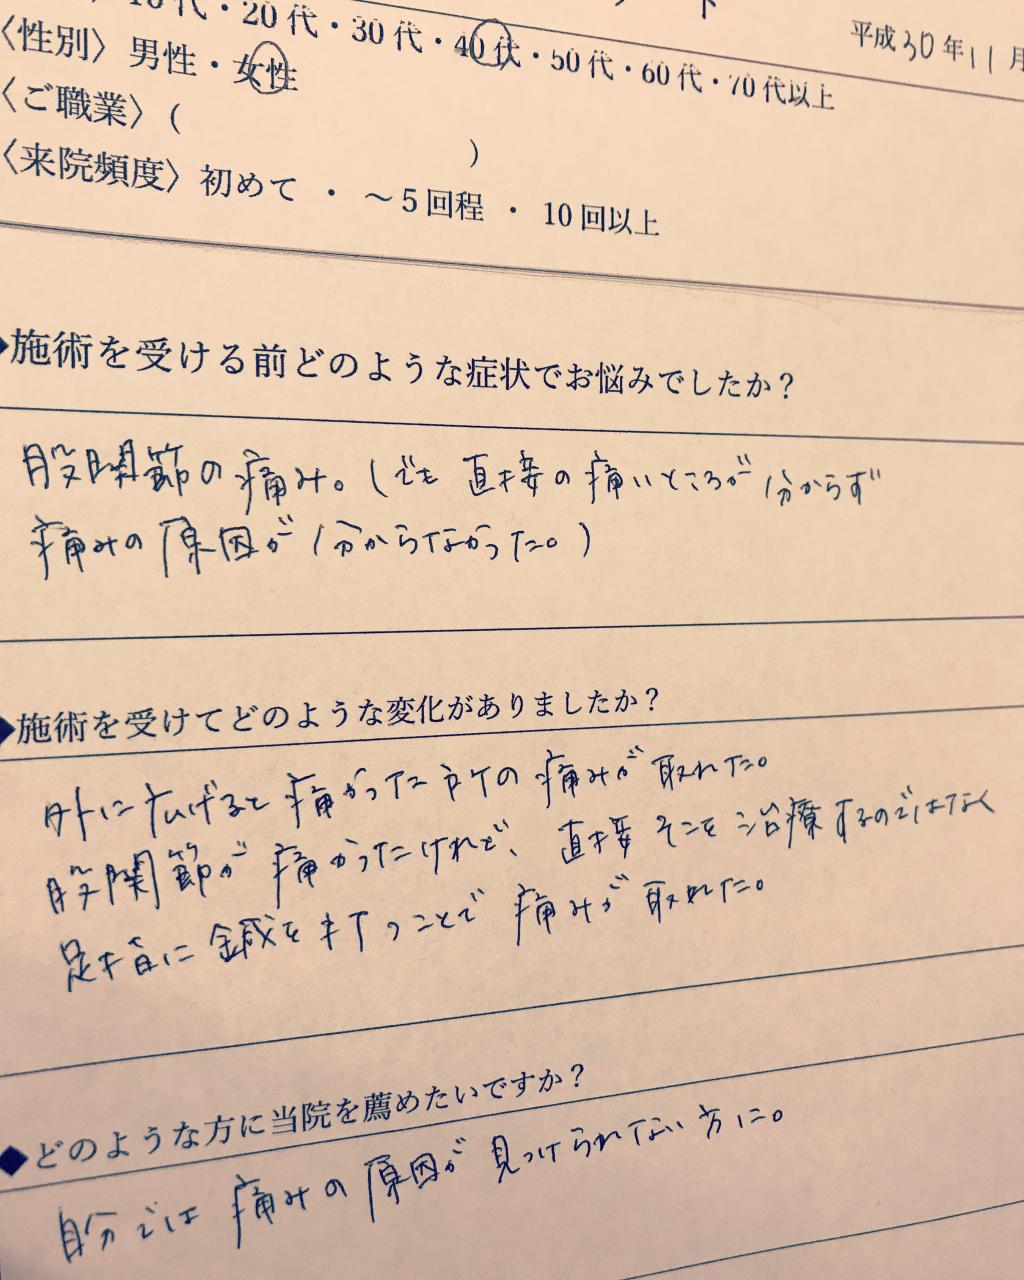 10代・20代・30代・40代・50代・60代・70代以上
平成30年11月
〈性別〉男性・女性
〈ご職業〉(　　　)
〈来院頻度〉初めて ・ ～5回程 ・ 10回以上
◆施術を受ける前どのような症状でお悩みでしたか？
股関節の痛み。(でも直接の痛いところが分からず
痛みの原因が分からなかった。)
◆施術を受けてどのような変化がありましたか？
外に広げると痛かった所の痛みが取れた。
股関節が痛かったけれど、直接そこを治療するのではなく
足指に鍼を打つことで痛みが取れた。
◆どのような方に当院を薦めたいですか？
自分では痛みの原因が見つけられない方に。